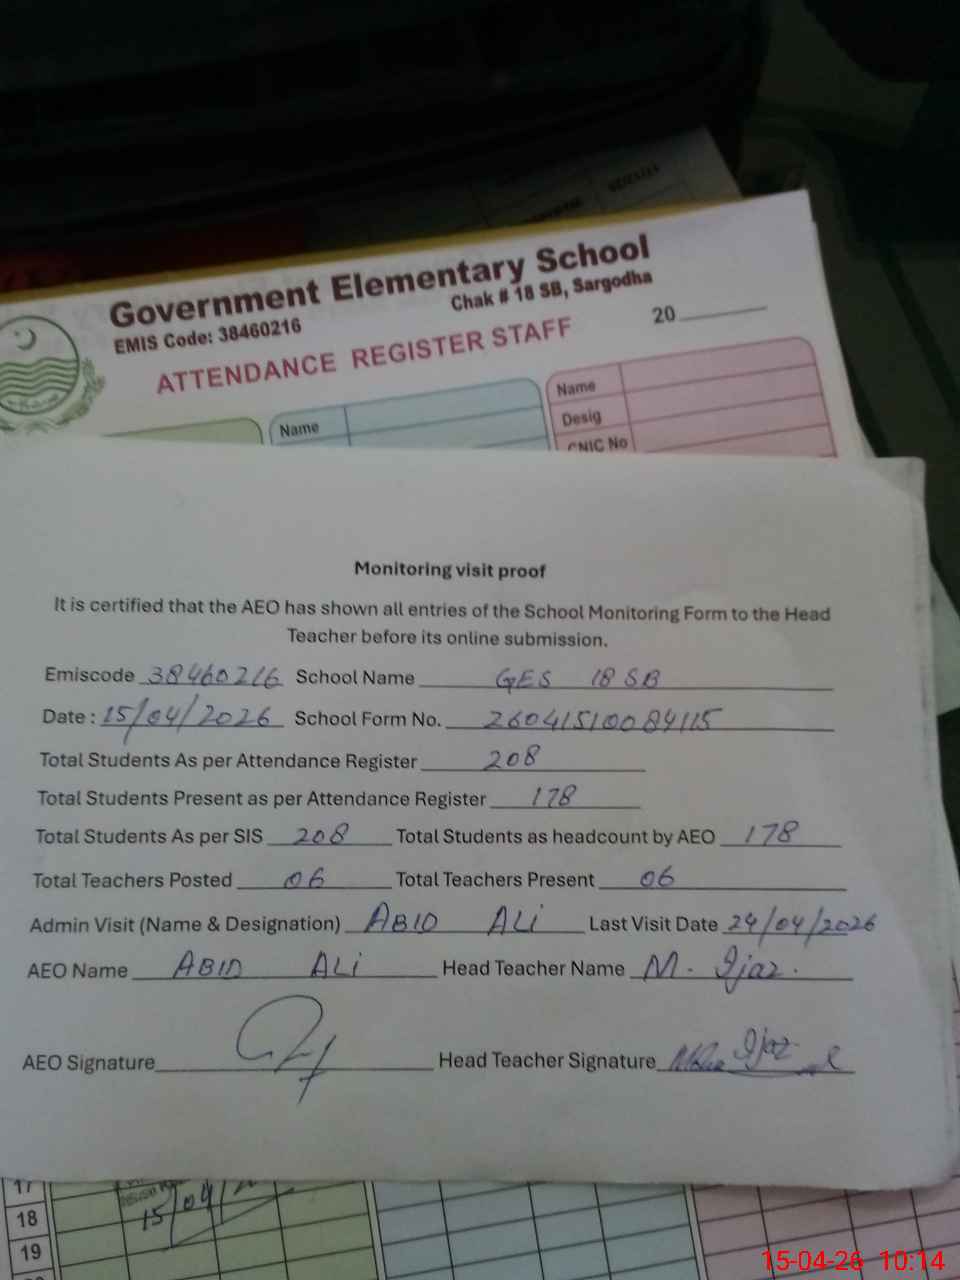 Government Elementary School
EMIS Code: 38460216 Chak # 18 SB, Sargodha
ATTENDANCE REGISTER STAFF 20
Name
Name
Desig
CNIC No
Monitoring visit proof
It is certified that the AEO has shown all entries of the School Monitoring Form to the Head
Teacher before its online submission.
Emiscode 38460216 School Name GES 18 SB
Date : 15/04/2026 School Form No. 26041510084115
Total Students As per Attendance Register 208
Total Students Present as per Attendance Register 178
Total Students As per SIS 208 Total Students as headcount by AEO 178
Total Teachers Posted 06 Total Teachers Present 06
Admin Visit (Name & Designation) ABID ALi Last Visit Date 24/04/2026
AEO Name ABID ALi Head Teacher Name M. Ijaz.
AEO Signature Head Teacher Signature Ijaz
17
15/04/2
18
19
15-04-26 10:14